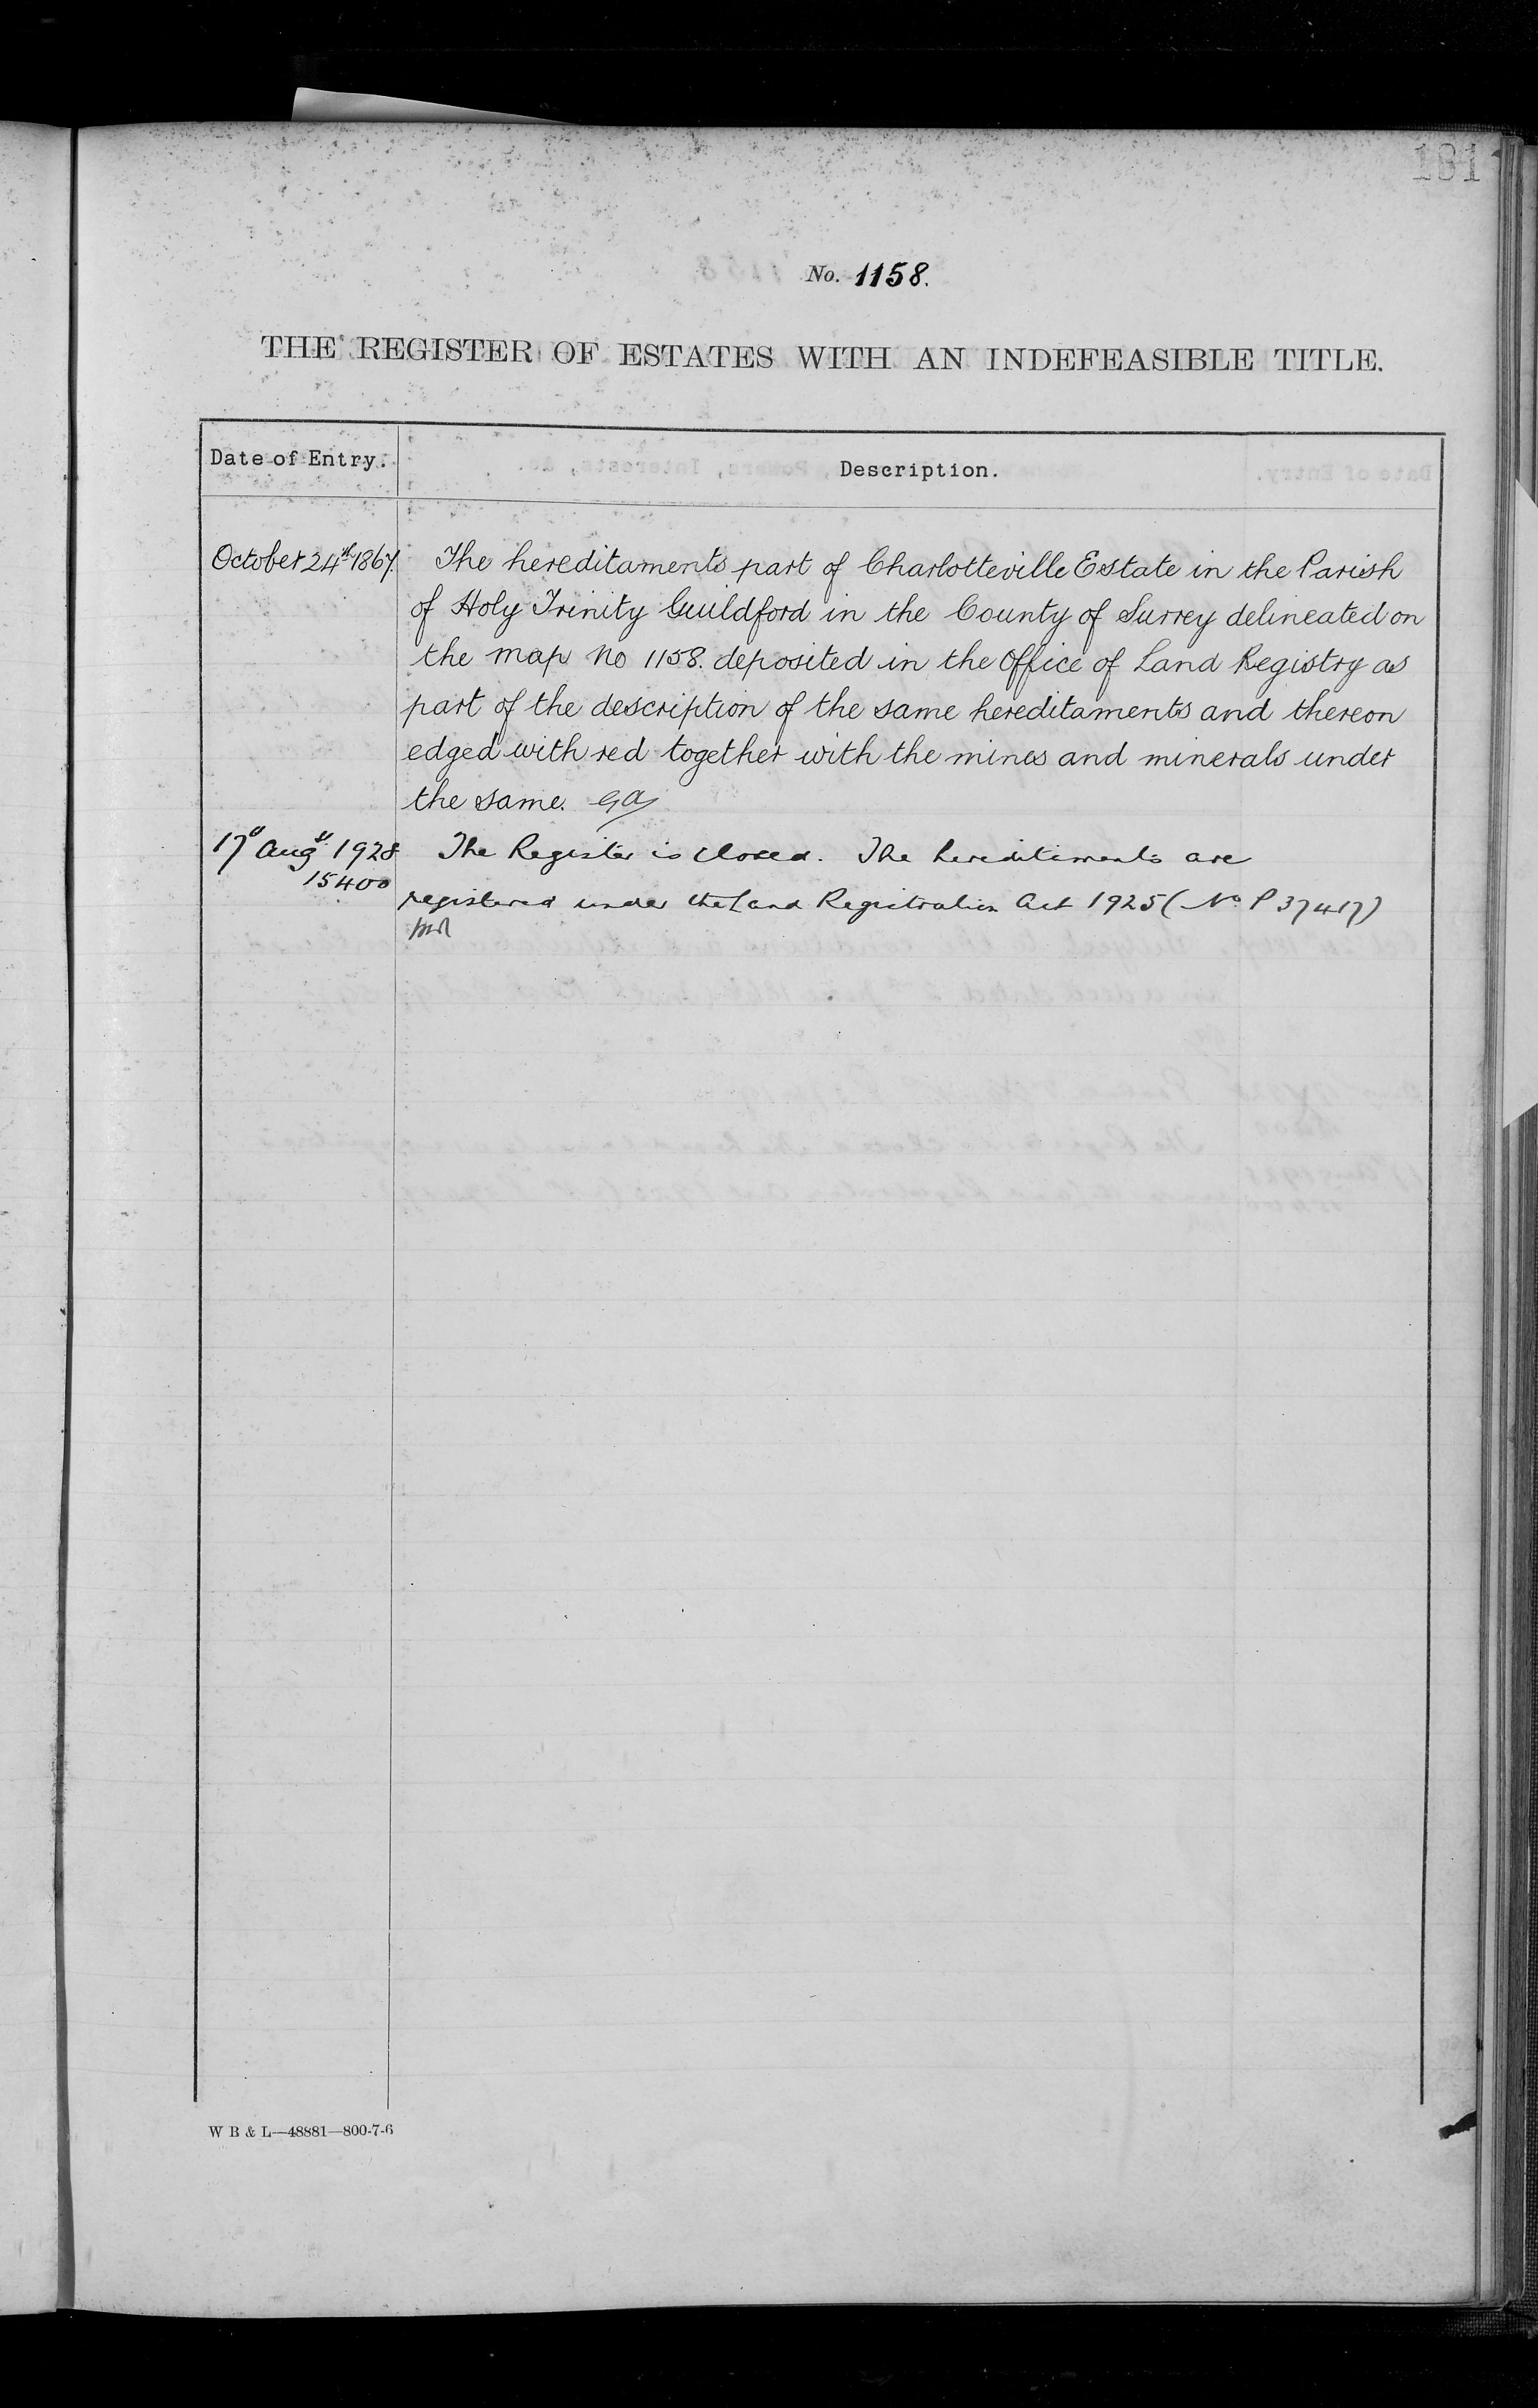 181
No. 1158.
THE REGISTER OF ESTATES WITH AN INDEFEASIBLE TITLE.
Date of Entry. Description.
October 24th 1867. The hereditaments part of Charlotteville Estate in the Parish
of Holy Trinity Guildford in the County of Surrey delineated on
the map No 1158. deposited in the Office of Land Registry as
part of the description of the same hereditaments and thereon
edged with red together with the mines and minerals under
the same.
17" Aug" 1928 The Register is closed. The hereditiments are
15400
registered under the Land Registration Act 1925 (No P 37417)
W B & L—48881—800-7-6